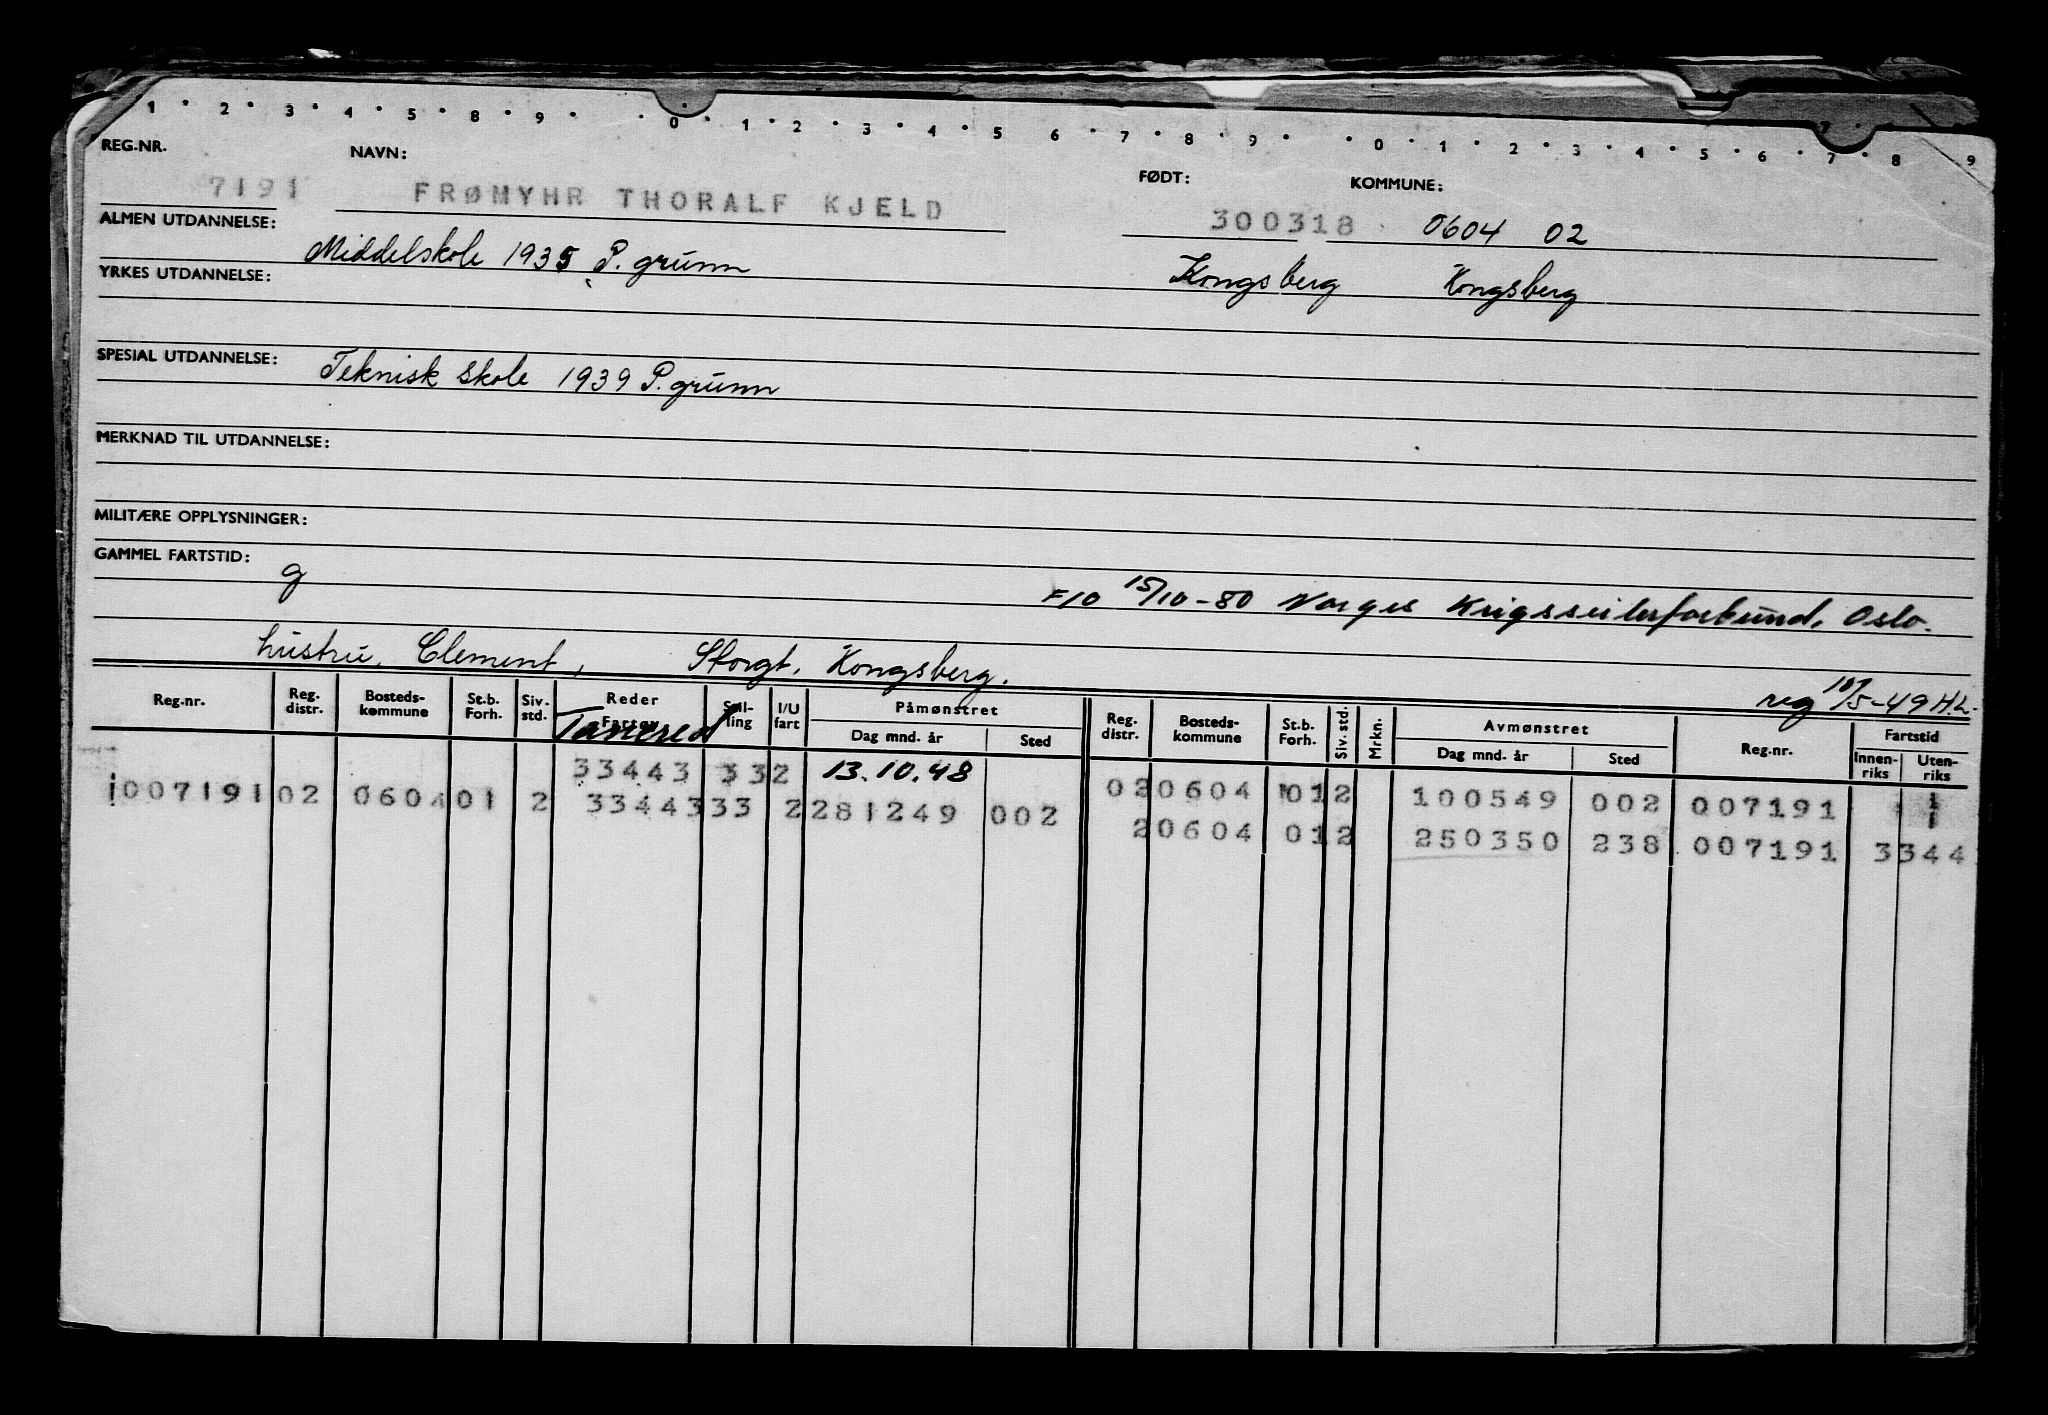 1 · 2 · 3 · 4 · 5 · 8 · 9 · · 0 · 1 · 2 · 3 · 4 · 5 6 · 7 · 8 · 9 · · 0 · 1 · 2 · 3 · 4 · 5 · 6 · 7 · 8 9
REG.NR. NAVN: FØDT: KOMMUNE:
7191 FRØMYHR THORALF KJELD 300318 0604 02
ALMEN UTDANNELSE: Middelskole 1935 P. grunn Kongsberg Kongsberg
YRKES UTDANNELSE:
SPESIAL UTDANNELSE: Teknisk skole 1939 P. grunn
MERKNAD TIL UTDANNELSE:
MILITÆRE OPPLYSNINGER:
GAMMEL FARTSTID: g
F10 15/10-80 Norges Krigsseilerforbund, Oslo.
hustru, Clement, Storgt, Kongsberg.
reg 10/5-49 H.L.
Reg.nr. Reg. distr. Bosteds-kommune St.b. Forh. Siv. std. Reder Fartøy Stil-ling I/U fart Påmønstret Dag mnd. år Sted Reg. distr. Bosteds-kommune St.b. Forh. Siv. std. Mrkn. Avmønstret Dag mnd. år Sted Reg.nr. Fartstid Innen-riks Uten-riks
Tancred
33443 332 13.10.48 02 0604 01 2 100549 002 007191
007191 02 0604 01 2 33443 33 2 281249 002 2 0604 01 2 250350 238 007191 3344